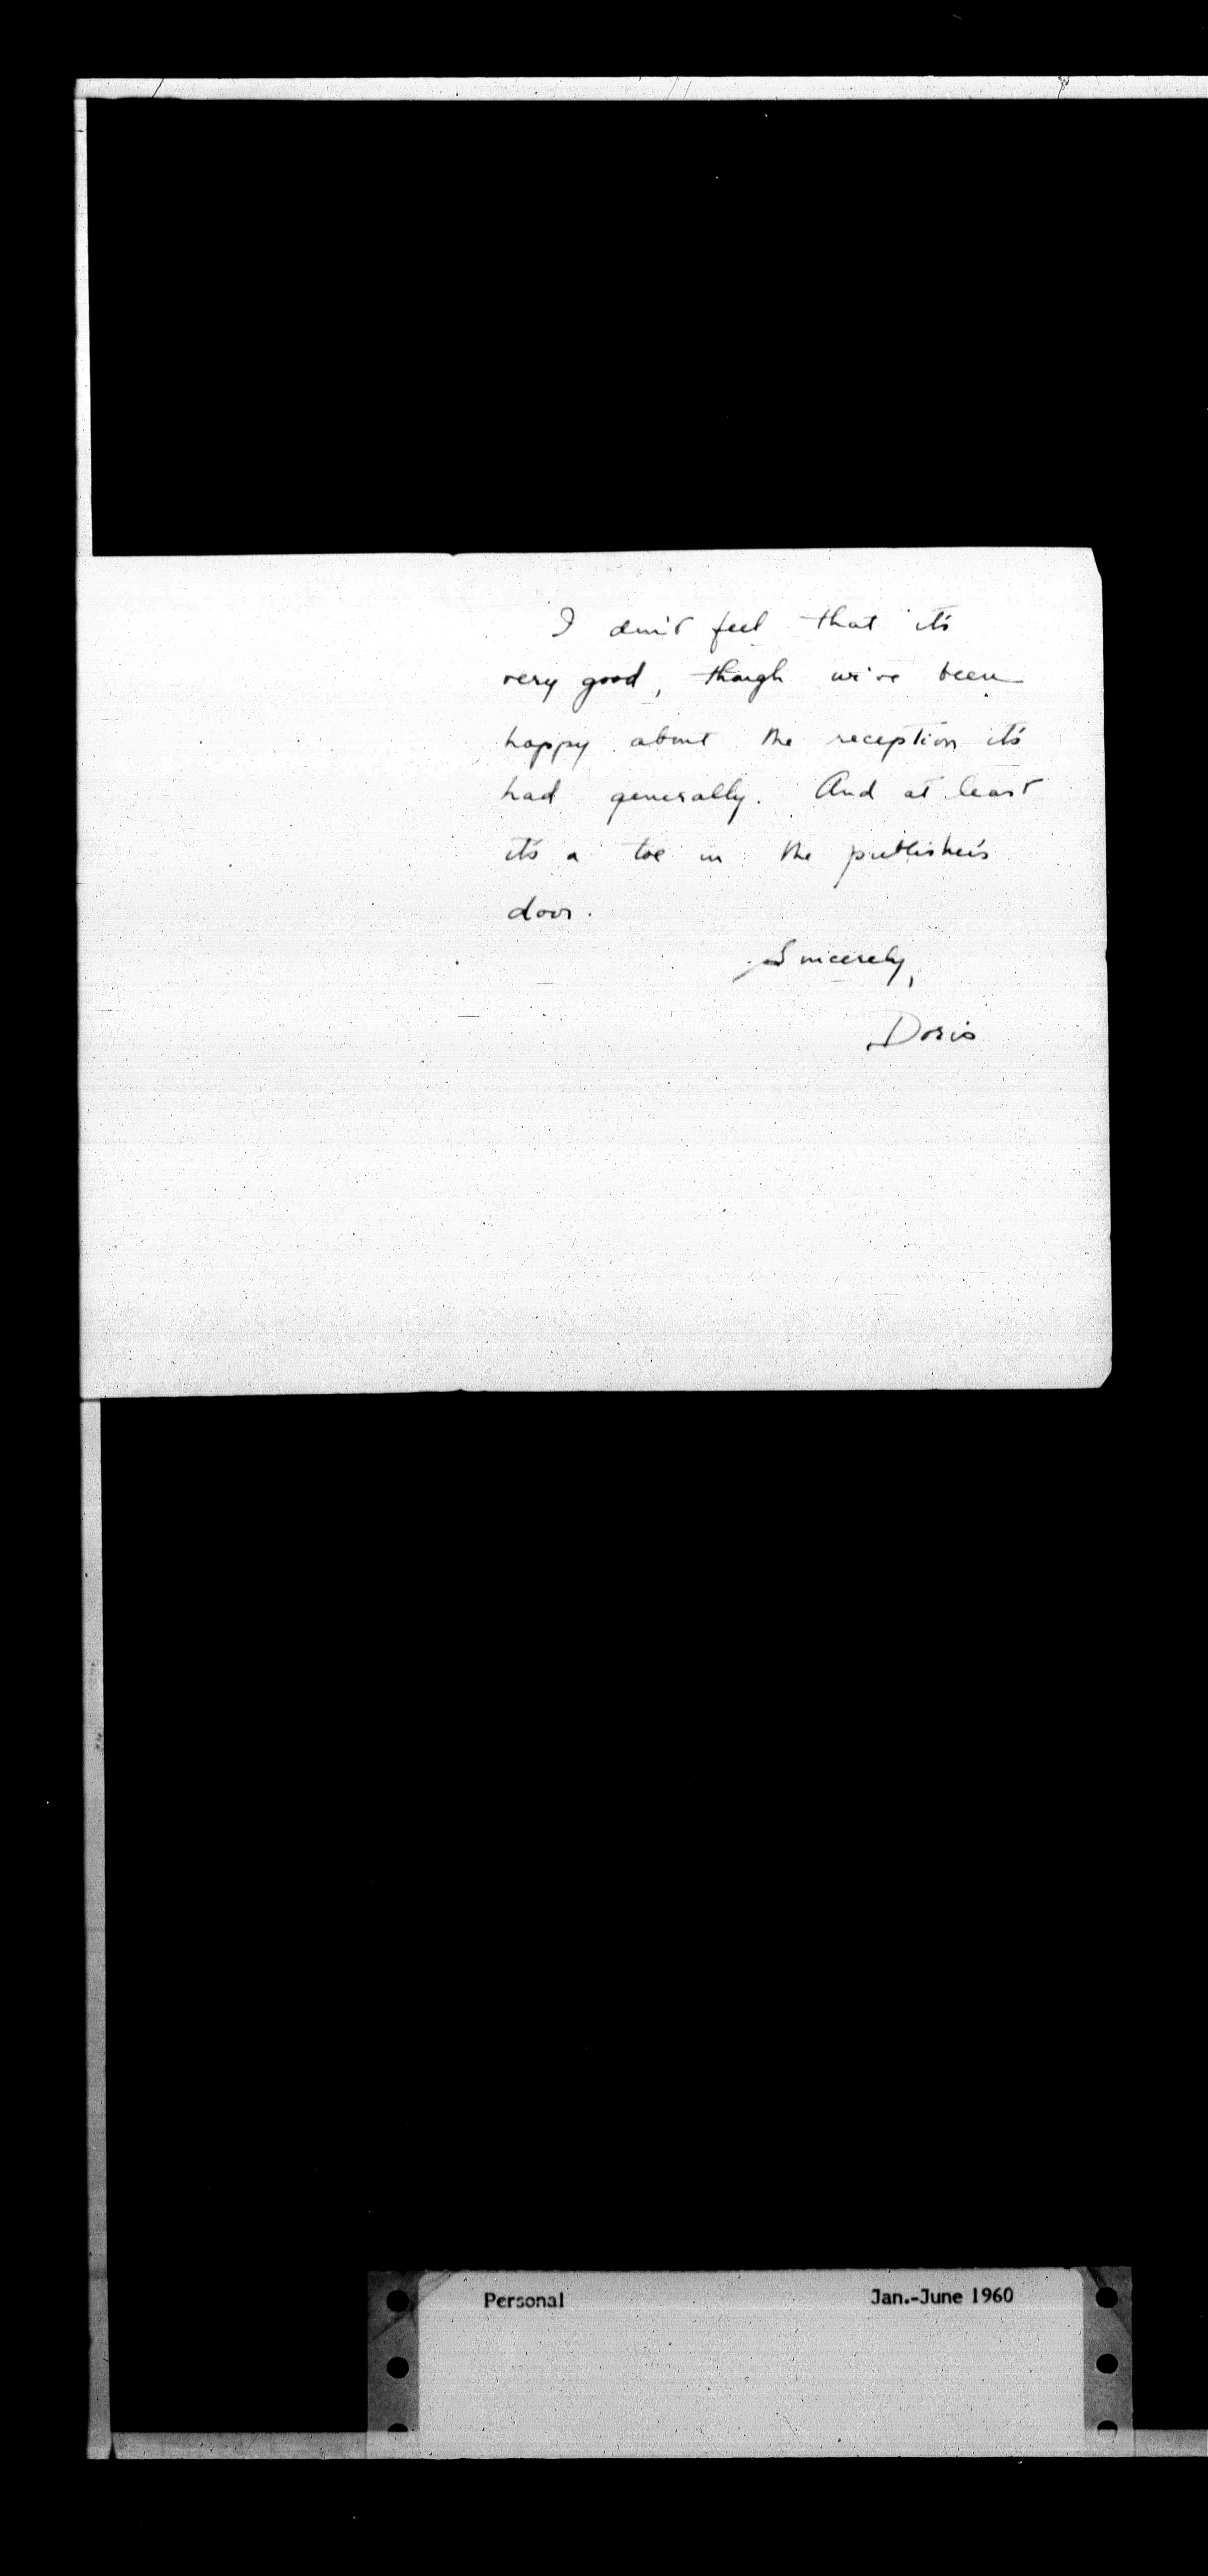 I don't feel that it's
very good, though we've been
happy about the reception it's
had generally. And at least
it's a toe in the publisher's
door.
Sincerely,
Doris
Personal Jan.-June 1960